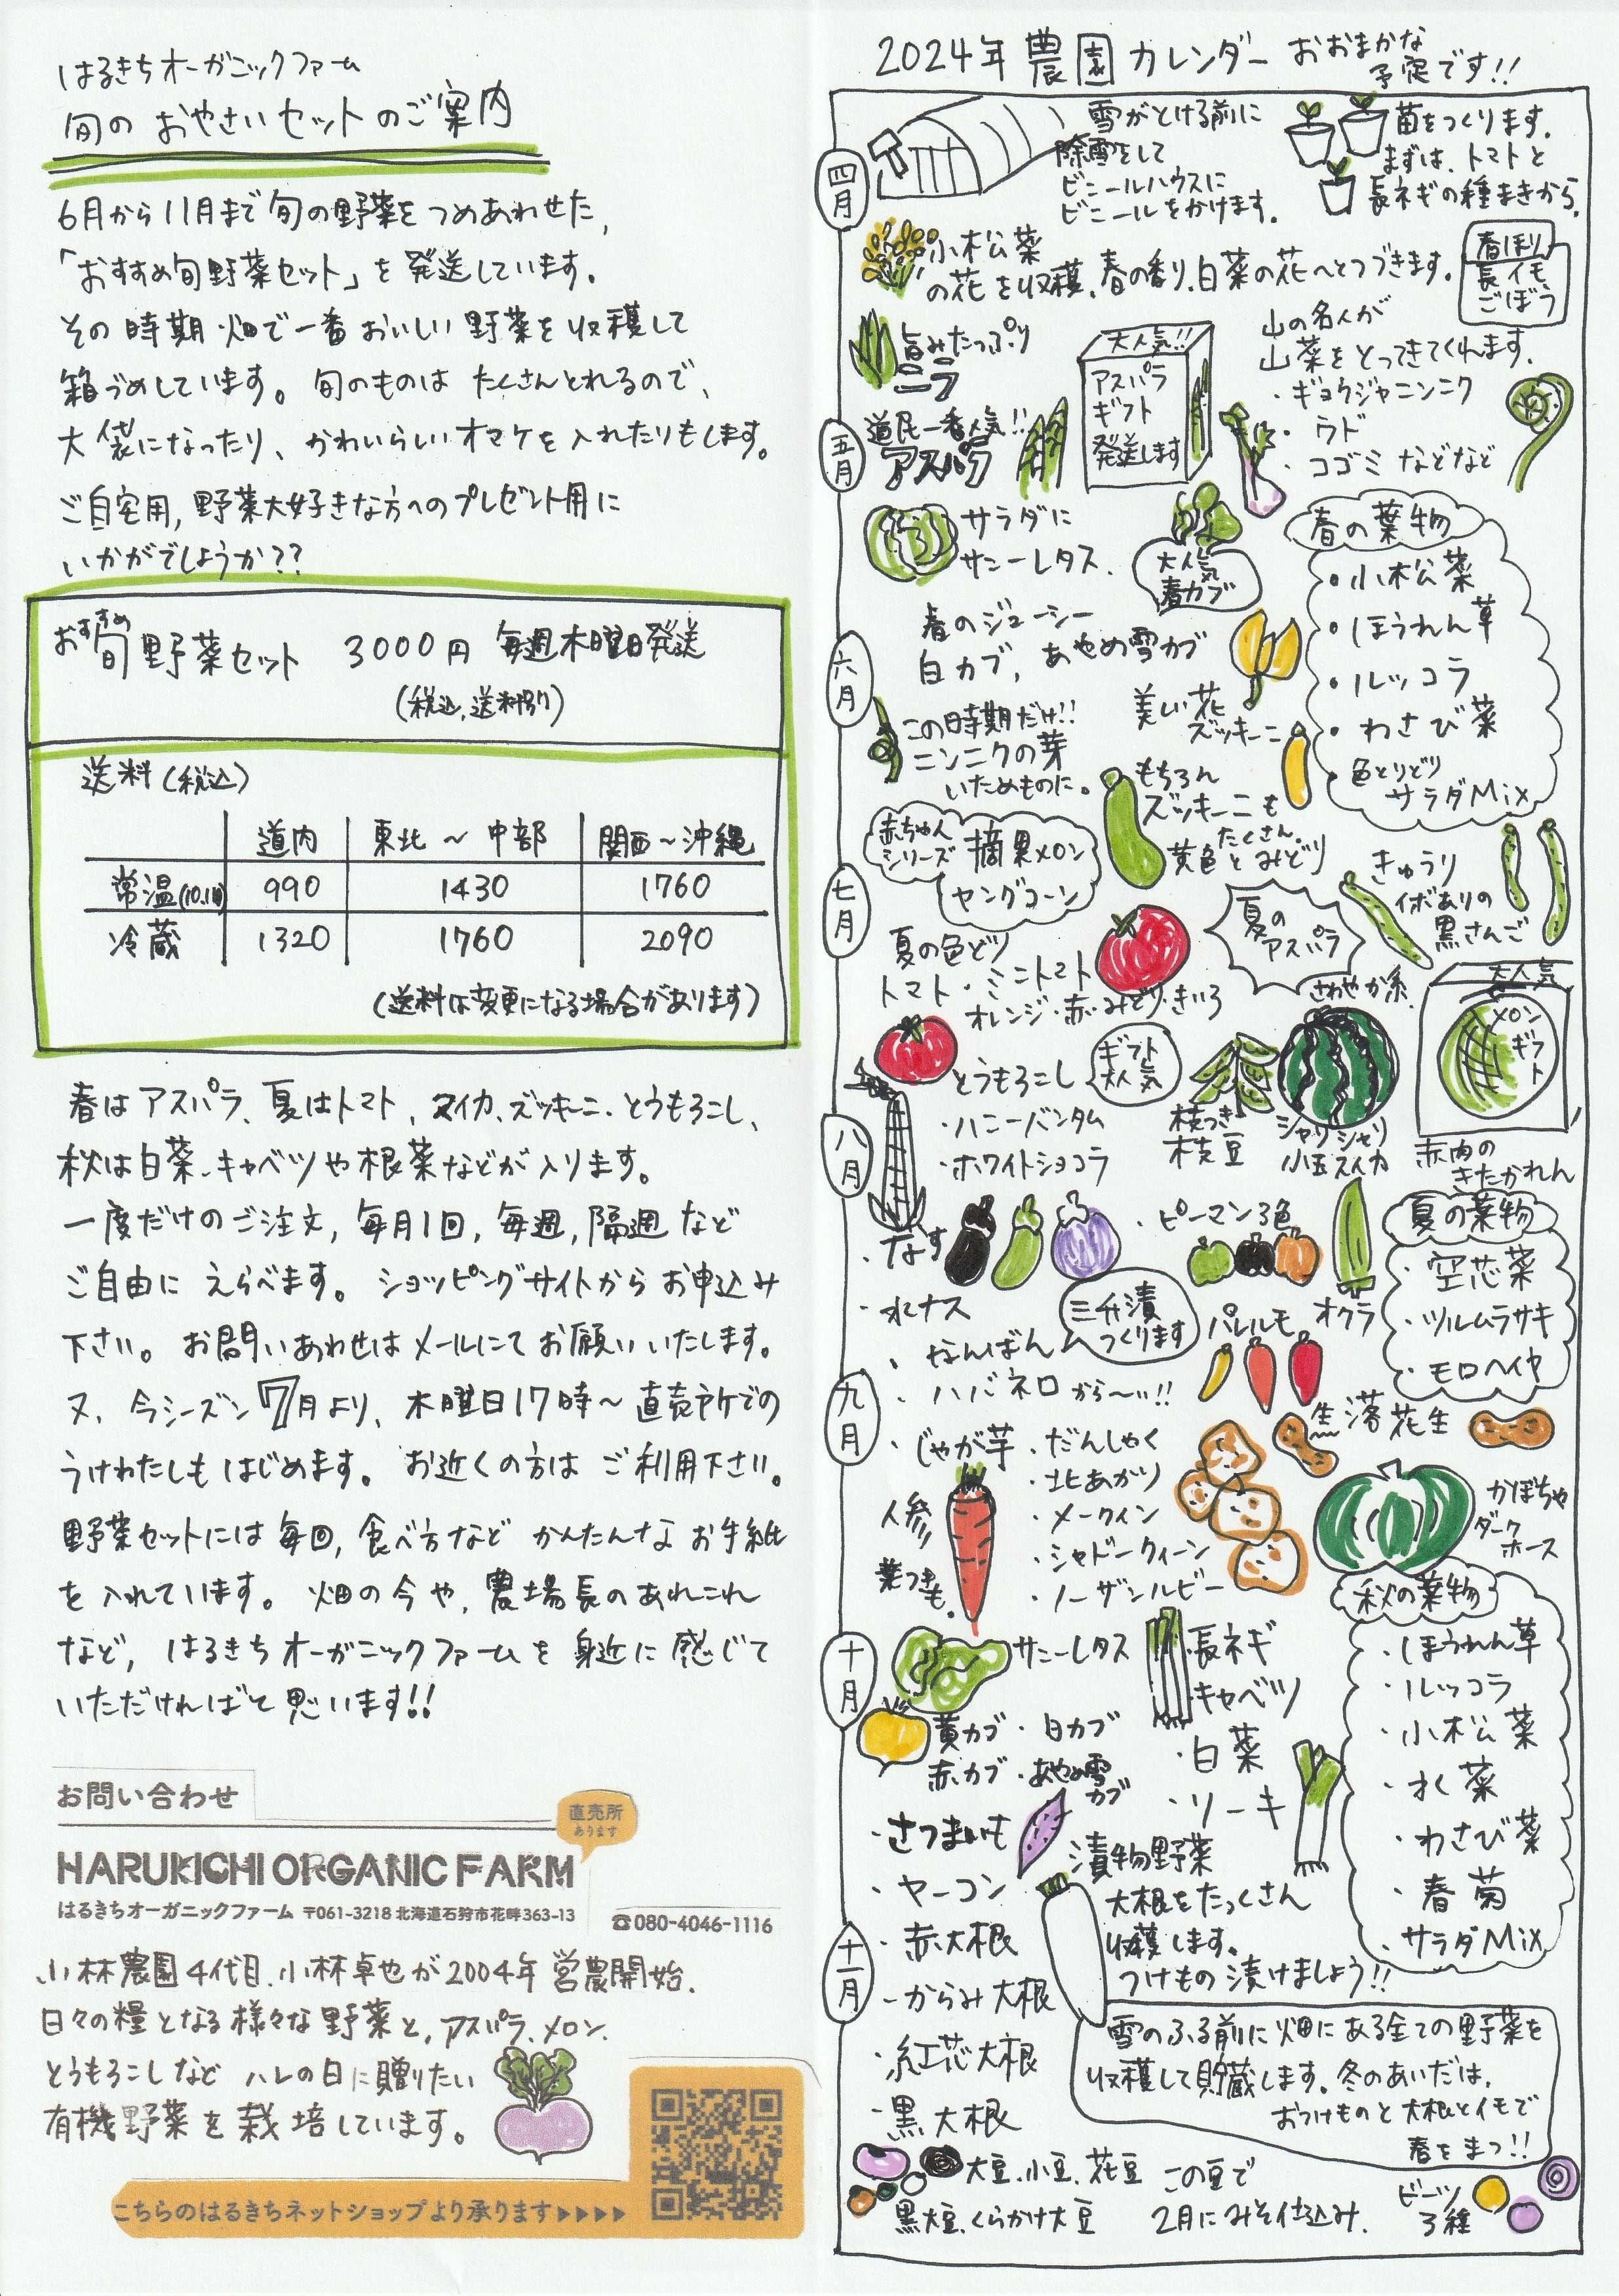 はるきちオーガニックファーム
旬の おやさいセットのご案内
6月から11月まで旬の野菜をつめあわせた、
「おすすめ旬野菜セット」を発送しています。
その時期・畑で一番おいしい野菜を収穫して
箱づめしています。旬のものはたくさんとれるので、
大袋になったり、かわいらしいオマケを入れたりもします。
ご自宅用、野菜大好きな方へのプレゼント用に
いかがでしょうか??
おすすめ旬野菜セット 3000円 毎週木曜日発送
(税込、送料別)
送料(税込)
道内 東北〜中部 関西〜沖縄
常温(10.11月) 990 1430 1760
冷蔵 1320 1760 2090
(送料は変更になる場合があります)
春はアスパラ、夏はトマト、スイカ、ズッキーニ、とうもろこし、
秋は白菜、キャベツや根菜などが入ります。
一度だけのご注文、毎月1回、毎週、隔週など
ご自由にえらべます。ショッピングサイトからお申込み
下さい。お問いあわせはメールにてお願いいたします。
又、今シーズン7月より、木曜日17時〜直売所での
うけわたしもはじめます。お近くの方はご利用下さい。
野菜セットには毎回、食べ方など かんたんなお手紙
を入れています。畑の今や、農場長のあれこれ
など、はるきちオーガニックファームを身近に感じて
いただければと思います!!
お問い合わせ
直売所
あります
HARUKICHI ORGANIC FARM
はるきちオーガニックファーム 〒061-3218 北海道石狩市花畔363-13
☎080-4046-1116
小林農園4代目、小林卓也が2004年営農開始.
日々の糧となる様々な野菜と、アスパラ、メロン、
とうもろこしなど ハレの日に贈りたい
有機野菜を栽培しています。
こちらのはるきちネットショップより承ります▶▶▶▶
2024年 農園カレンダー おおまかな
予定です!!
四月
雪がとける前に
除雪をして
ビニールハウスに
ビニールをかけます.
苗をつくります.
まずは、トマトと
長ネギの種まきから.
小松菜
の花を収穫.春の香り.白菜の花へとつづきます.
春ほり
長イモ
ごぼう
旨みたっぷり
ニラ
大人気!!
アスパラ
ギフト
発送します
山の名人が
山菜をとってきてくれます.
・ギョウジャニンニク
・ウド
・コゴミ などなど
五月
道民一番人気!!
アスパラ
サラダに
サニーレタス.
大人気
春カブ
春の葉物
・小松菜
・ほうれん草
・ルッコラ
・わさび菜
・色とりどり
サラダMix
春のジューシー
白カブ、あやめ雪カブ
六月
美しい花
ズッキーニ
この時期だけ!!
ニンニクの芽
いためものに。
もちろん
ズッキーニも
たくさん。
黄色とみどり
赤ちゃん
シリーズ
摘果メロン
ヤングコーン
七月
きゅうり
イボありの
黒さんご
夏の
アスパラ
さわやか系.
夏の色どり
トマト・ミニトマト
オレンジ・赤・みどり・きいろ
大人気
メロン
ギフト
とうもろこし
ギフト
大人気
・ハニーバンタム
・ホワイトショコラ
枝つき
枝豆
シャリシャリ
小玉スイカ
赤肉の
きたかれん
八月
・なす
・水ナス
・ピーマン3色
オクラ
夏の葉物
・空芯菜
・ツルムラサキ
・モロヘイヤ
三升漬
つくります
・なんばん
・ハバネロから〜!!
パレルモ
九月
生落花生
・じゃが芋
・だんしゃく
・北あかり
・メークィン
・シャドークィーン
・ノーザンルビー
人参
葉つきも.
かぼちゃ
ダーク
ホース
秋の葉物
・ほうれん草
・ルッコラ
・小松菜
・水菜
・わさび菜
・春菊
・サラダMix
十月
サニーレタス
・長ネギ
・キャベツ
・白菜
・リーキ
黄カブ・白カブ
赤カブ・あやめ雪
カブ
・さつまいも
・ヤーコン
・赤大根
・からみ大根
・紅芯大根
・黒大根
漬物野菜
大根をたっくさん
収穫します。
つけもの漬けましょう!!
十一月
雪のふる前に畑にある全ての野菜を
収穫して貯蔵します。冬のあいだは、
おつけものと大根とイモで
春をまつ!!
大豆、小豆、花豆
黒大豆、くらかけ大豆
この豆で
2月にみそ仕込み.
ビーツ
3種